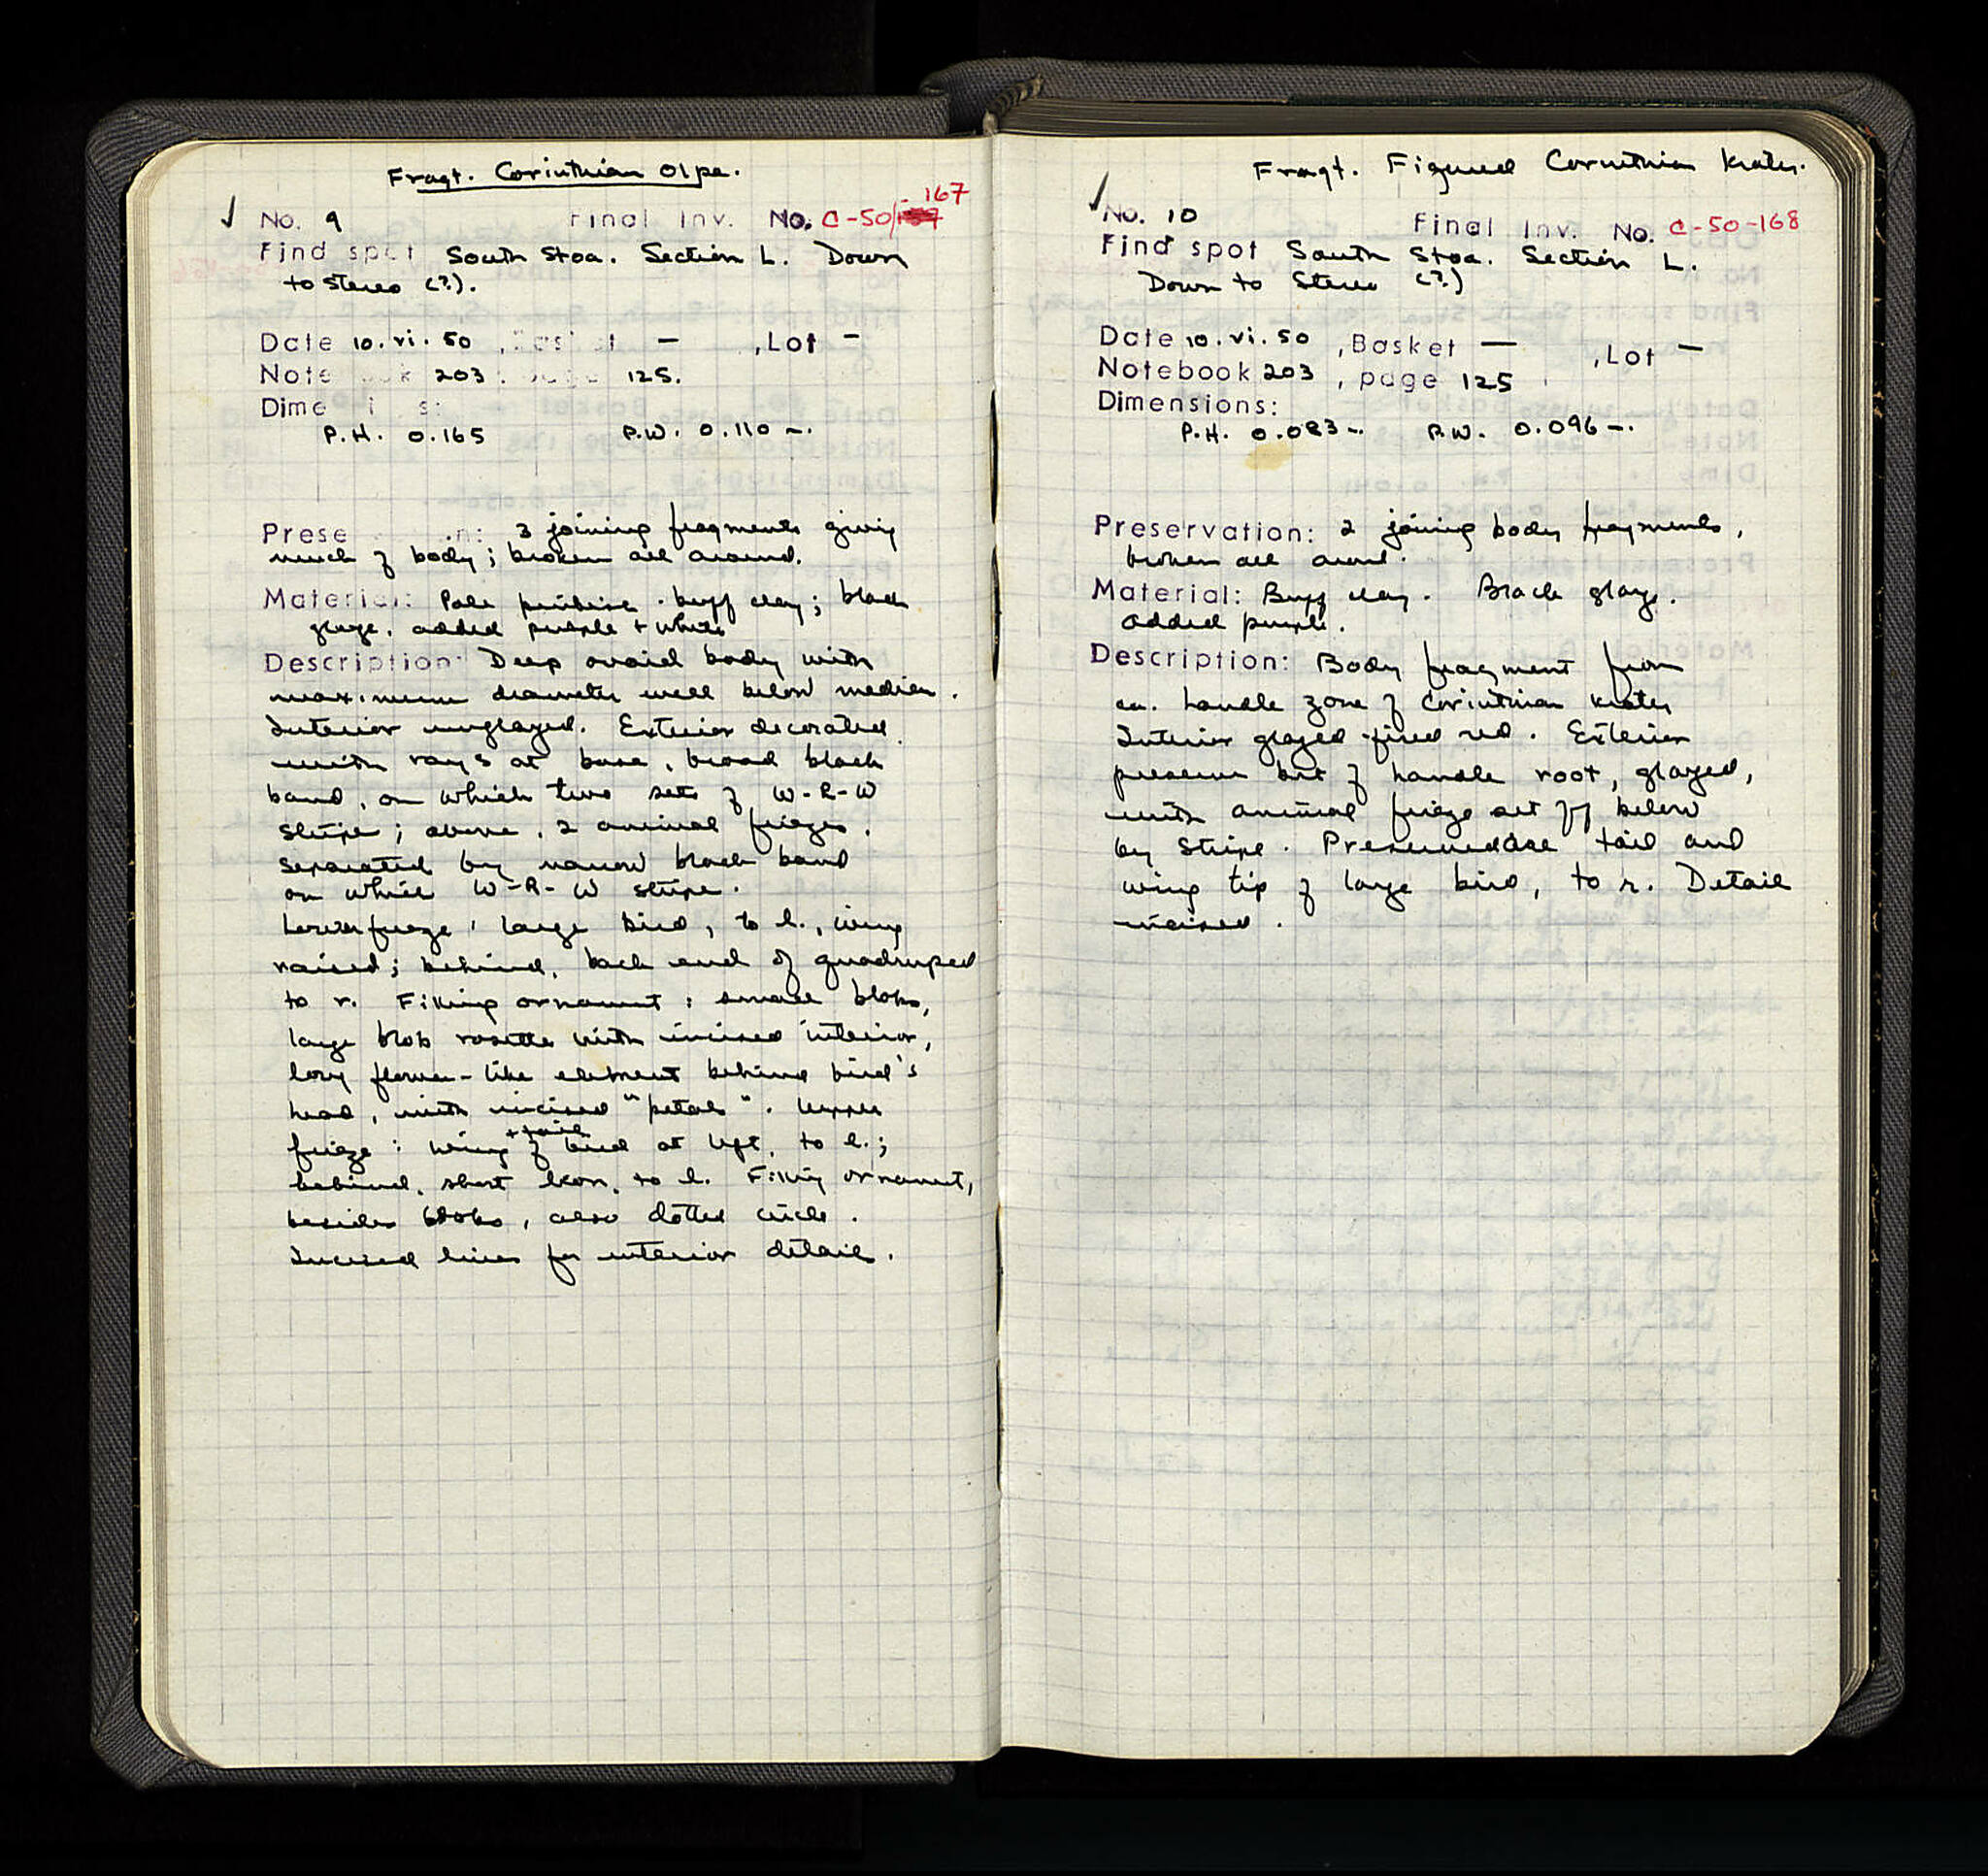 Fragt. Corinthian Olpe.
✓ No. 9 Final Inv. No. C-50-167
Find spot South Stoa. Section L. Down
to stereo (?).
Date 10.vi.50 , Basket — , Lot —
Notebook 203, page 125.
Dimensions:
P.H. 0.165 P.W. 0.110 —.
Preservation: 3 joining fragments giving
much of body; broken all around.
Material: Pale pinkish-buff clay; black
glaze, added purple + white
Description: Deep ovoid body with
maximum diameter well below median.
Interior unglazed. Exterior decorated
with rays at base, broad black
band, on which two sets of W-R-W
stripe; above, 2 animal friezes,
separated by narrow black band
on which W-R-W stripe.
Lower frieze: large bird, to l., wing
raised; behind, back end of quadruped
to r. Filling ornament: small blobs,
large blob rosettes with incised interior,
long flower-like element behind bird's
head, with incised "petals". Upper
frieze: wing + tail of bird at left, to l.;
behind, short lion, to l. Filling ornament,
besides blobs, also dotted circle.
Incised lines for interior detail.
Fragt. Figured Corinthian Krater.
✓ No. 10 Final Inv. No. C-50-168
Find spot South Stoa. Section L.
Down to Stereo (?)
Date 10.vi.50 , Basket — , Lot —
Notebook 203 , page 125
Dimensions:
P.H. 0.083 —. P.W. 0.096 —.
Preservation: 2 joining body fragments,
broken all around.
Material: Buff clay. Black glaze.
added purple.
Description: Body fragment from
ca. handle zone of Corinthian krater
Interior glazed-fired red. Exterior
preserves bit of handle root, glazed,
with animal frieze set off below
by stripe. Preserved are tail and
wing tip of large bird, to r. Detail
incised.